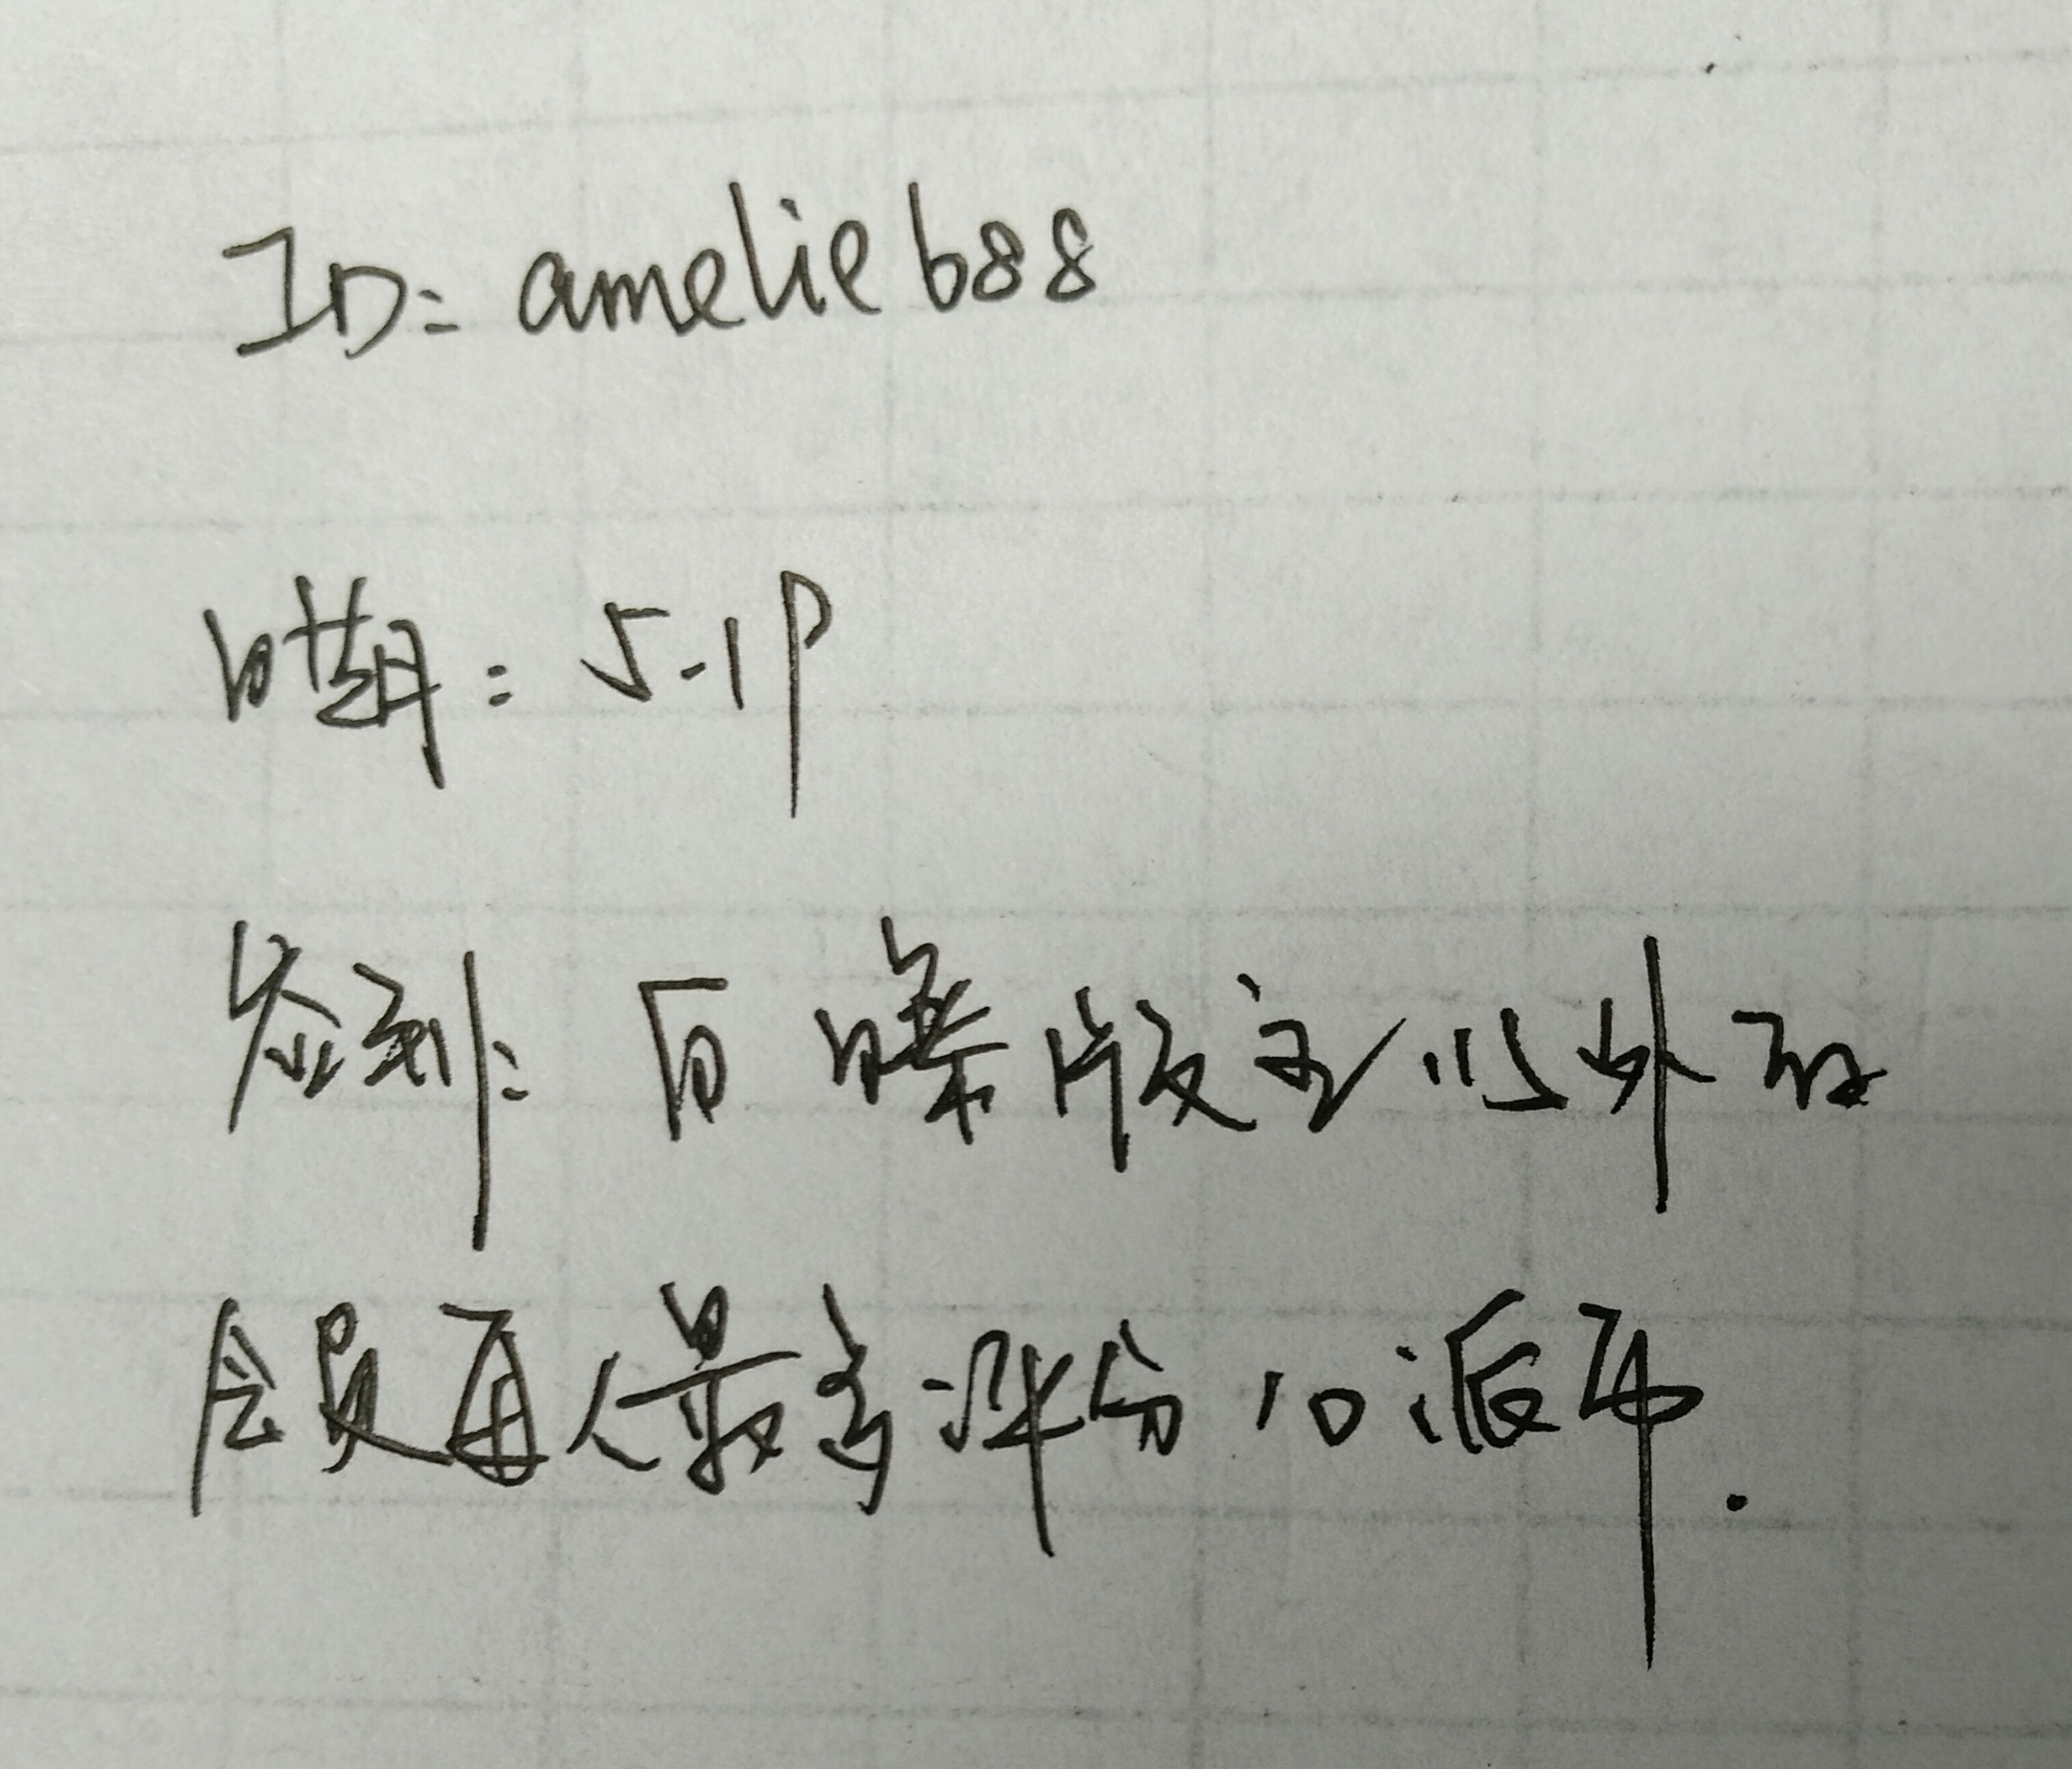 ID: amelie688
日期: 5.19
签到: 自曝版主以外的
会员每人最多评分10派币.